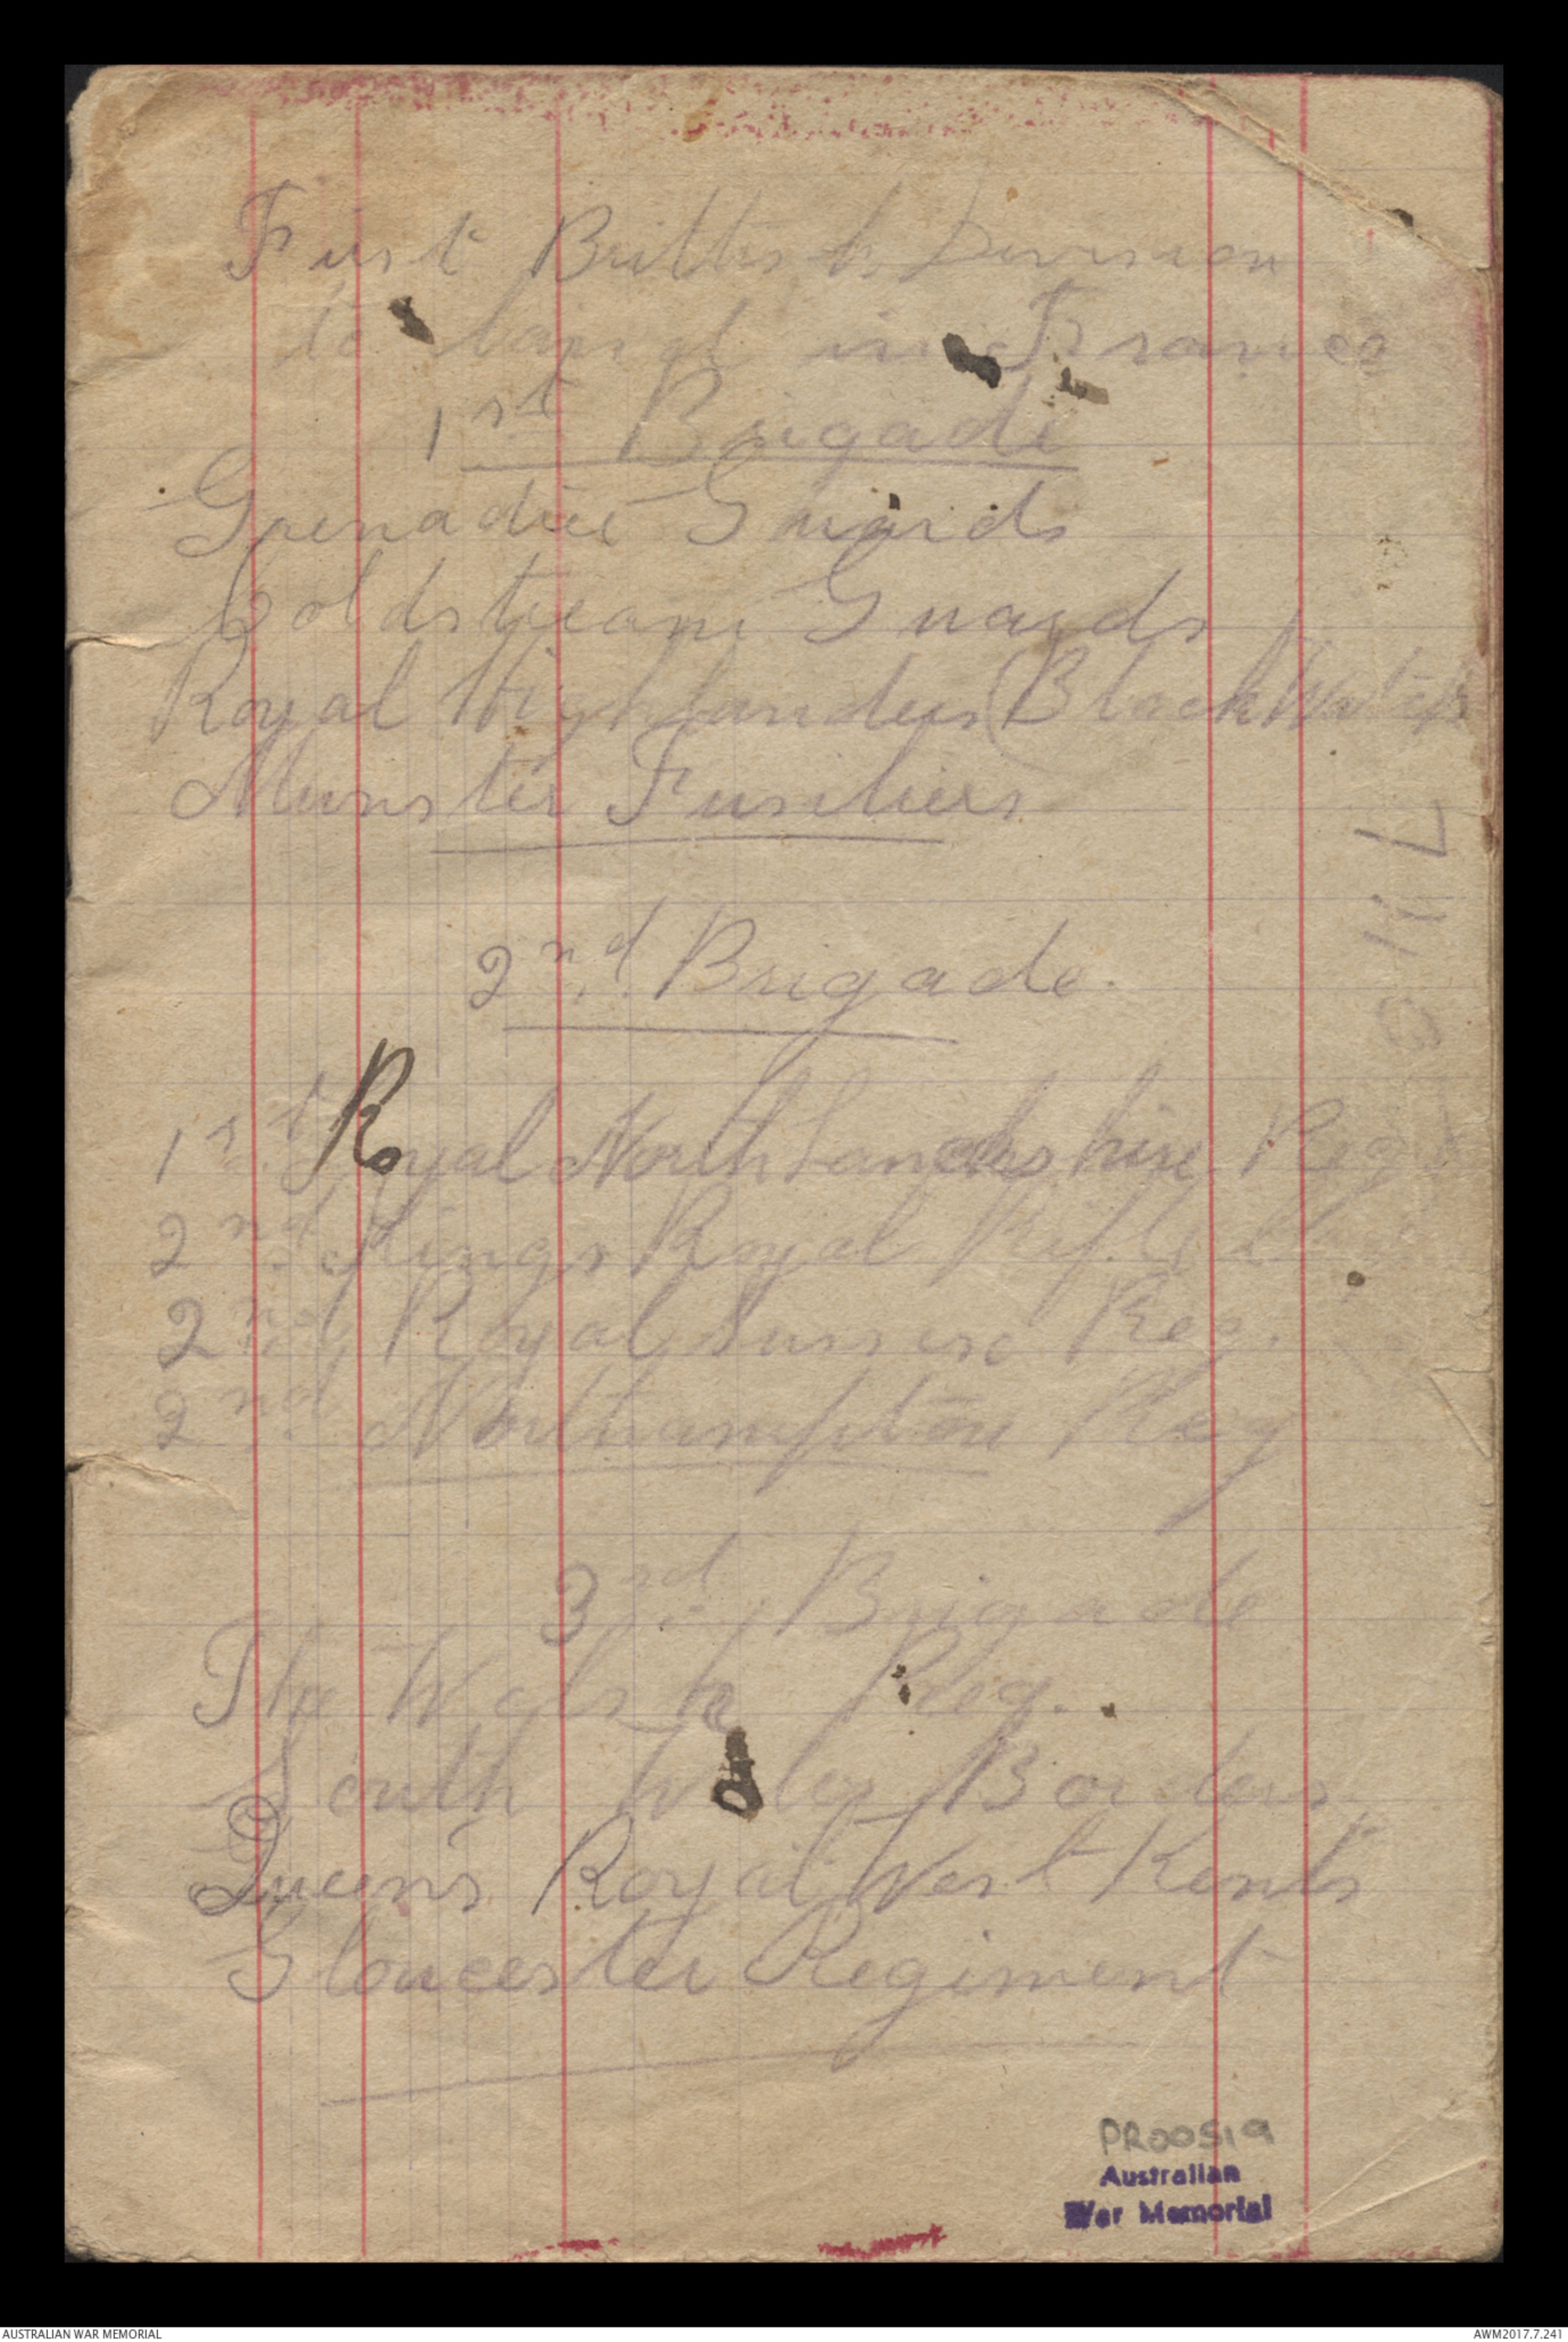 First Brittish Division
to land in France
1st Brigade
Grenadier Guards
Coldstream Guards
Royal Highlanders (Black Watch
Munster Fusiliers
2nd Brigade
1st Royal North Lancashire Reg
2nd Kings Royal Rifles
2nd Royal Sussex Reg.
2nd Northampton Reg
3rd Brigade
The Welsh Reg.
South Wales Borders
Queens Royal West Kents
Gloucester Regiment
PR00519
Australian
War Memorial
AUSTRALIAN WAR MEMORIAL
AWM2017.7.241